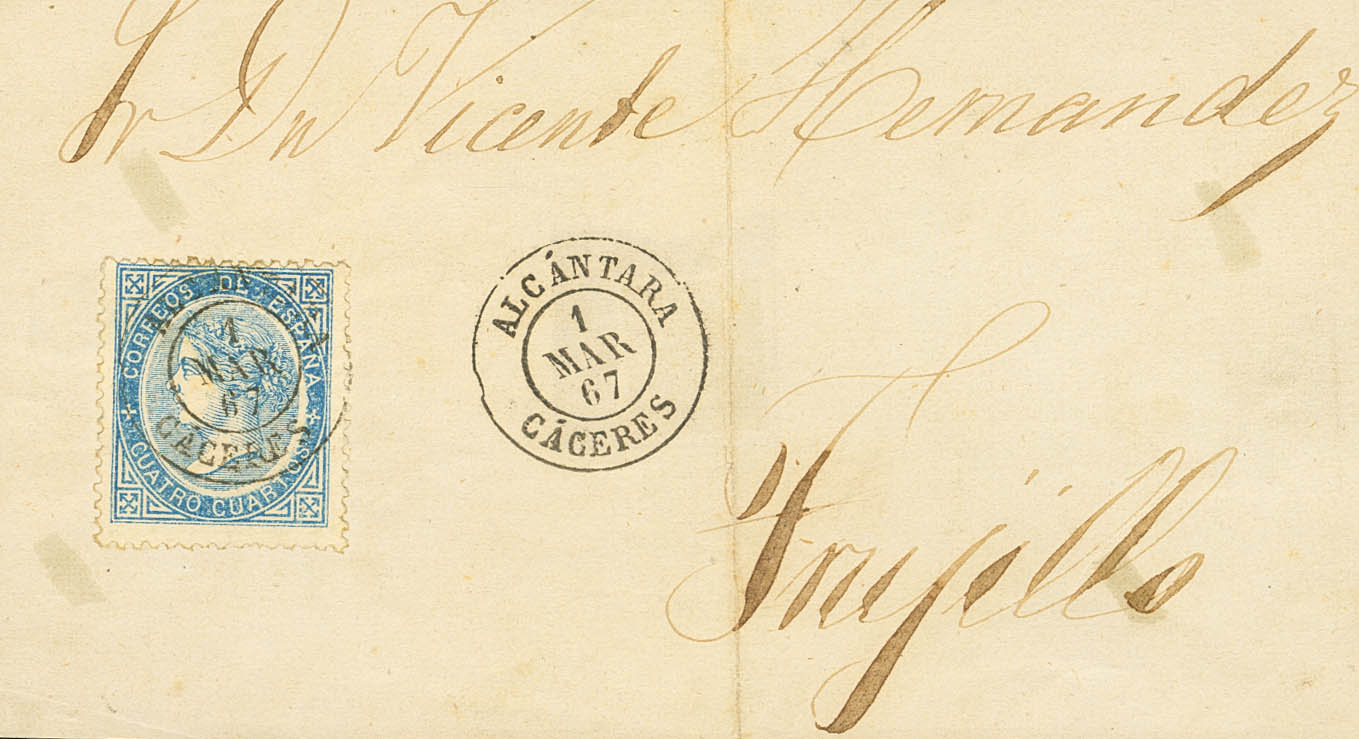 Sr Dn Vicente Hernandez
CORREOS DE ESPAÑA
CUATRO CUARTOS
1
MAR
67
CÁCERES
ALCÁNTARA
1
MAR
67
CÁCERES
Trujillo